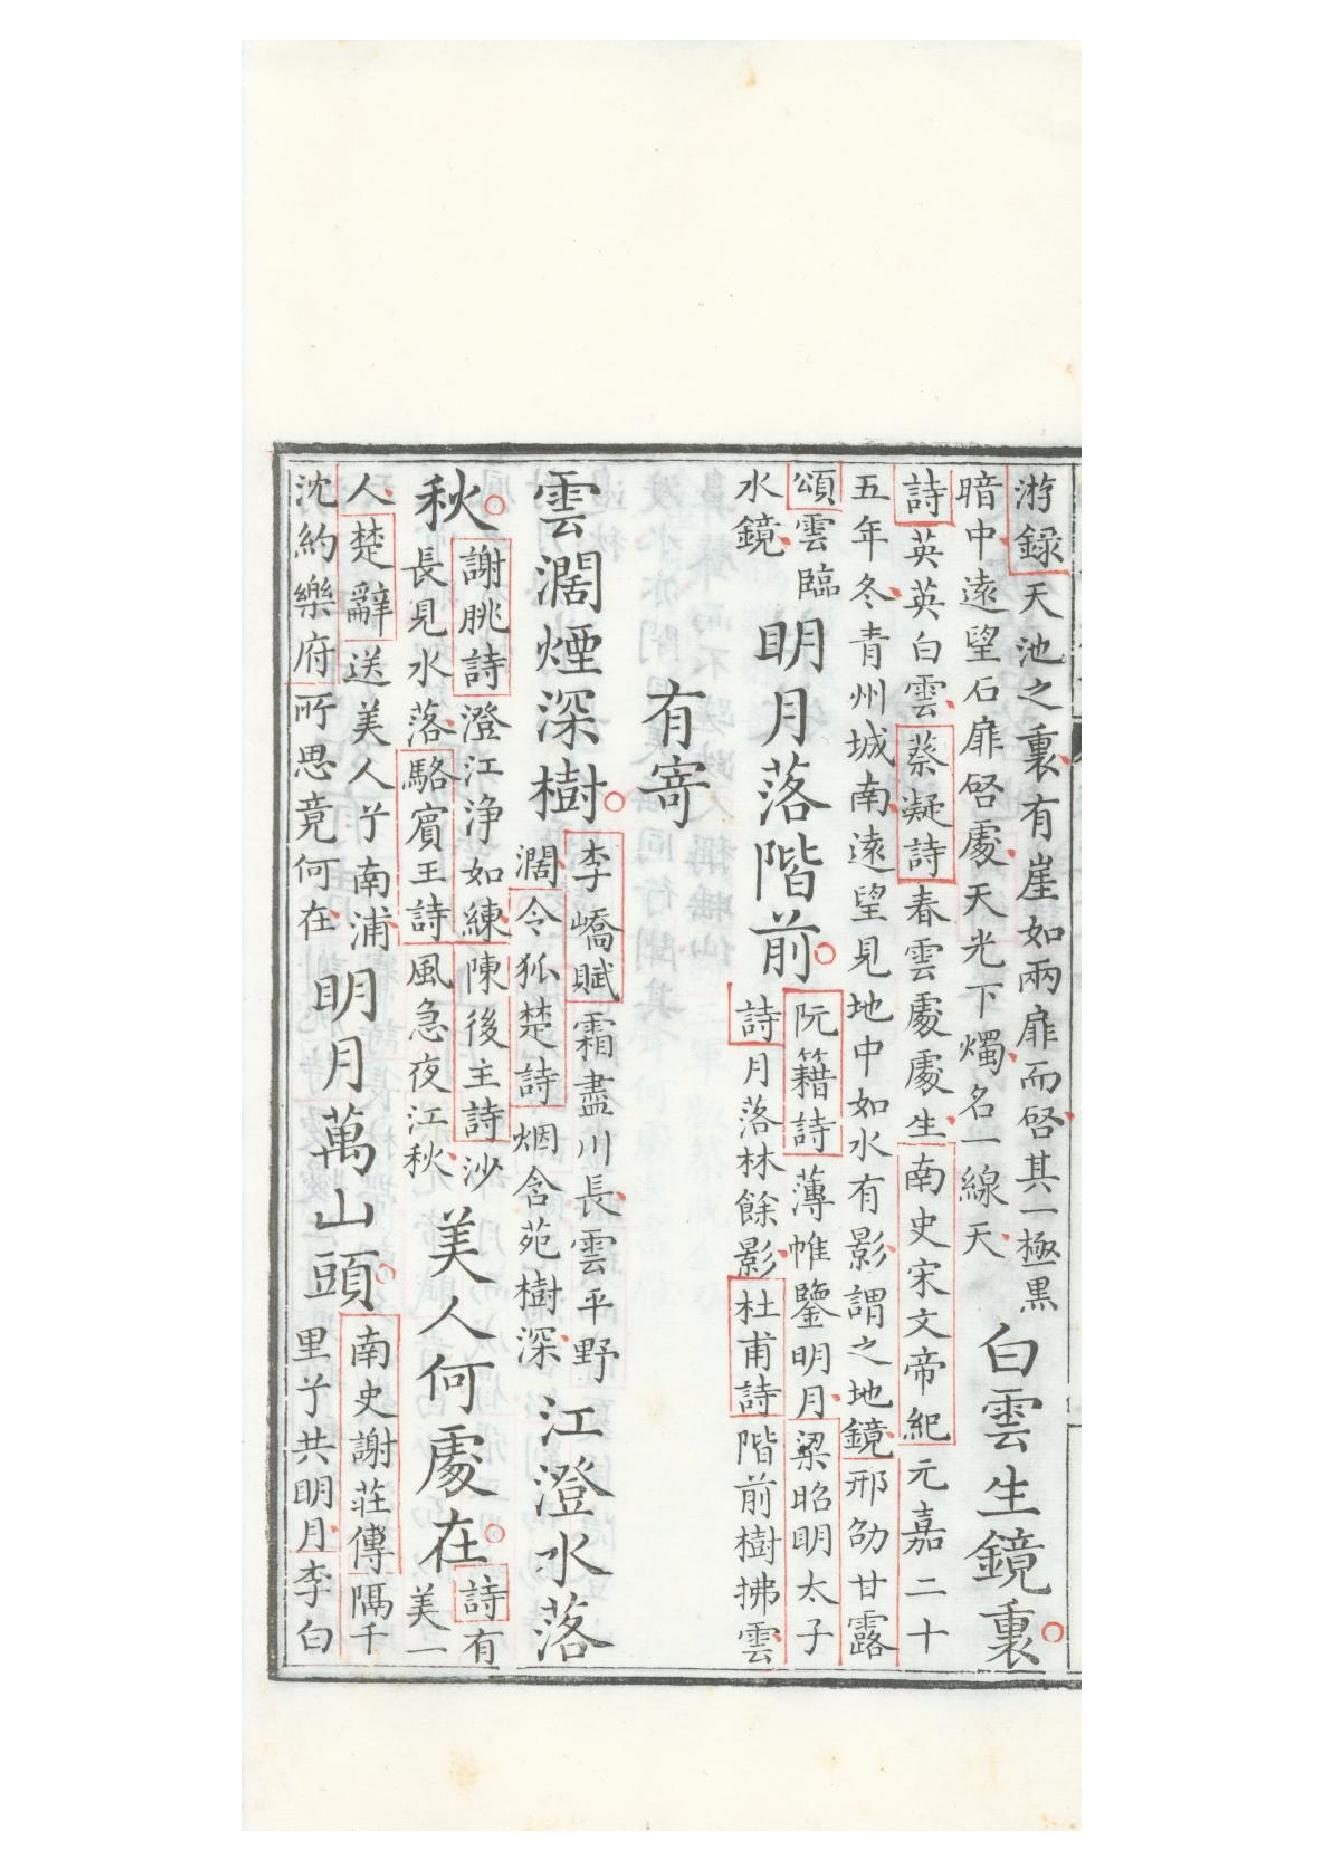 游録天池之裏有崖如兩扉而啓其一極黒
暗中遠望石扉啓處天光下燭名一線天
白雲生鏡裏
詩英英白雲蔡凝詩春雲處處生南史宋文帝紀元嘉二十
五年冬青州城南遠望見地中如水有影謂之地鏡邢劭甘露
頌雲臨
水鏡
明月落階前
阮籍詩薄帷鑒明月梁昭明太子
詩月落林餘影杜甫詩階前樹拂雲
有寄
雲濶煙深樹
李嶠賦霜盡川長雲平野
濶令狐楚詩烟含苑樹深
江澄水落
秋
謝朓詩澄江浄如練陳後主詩沙
長見水落駱賓王詩風急夜江秋
美人何處在
詩有
美一
人楚辭送美人兮南浦
沈約樂府所思竟何在
明月萬山頭
南史謝莊傳隔千
里兮共明月李白